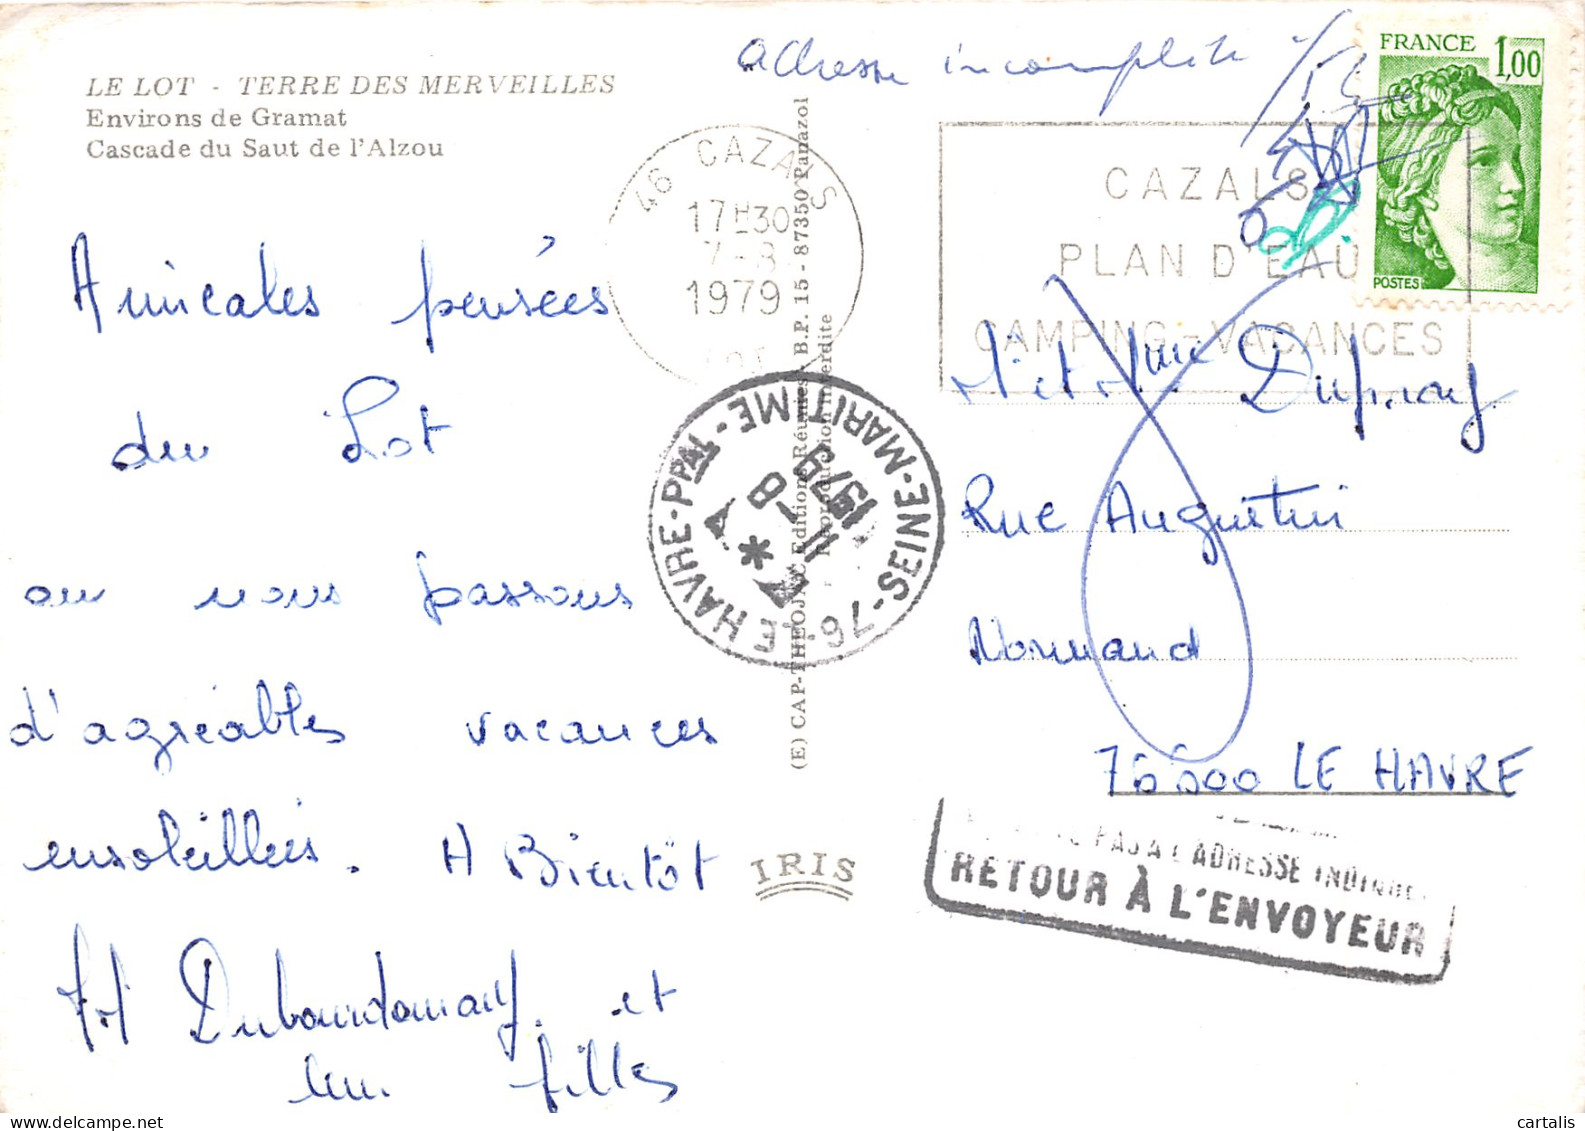 LE LOT - TERRE DES MERVEILLES
Environs de Gramat
Cascade du Saut de l'Alzou
adresse incomplete
FRANCE 1,00
POSTES
46 CAZALS
17H30
7-8
1979
LOT
CAZALS
PLAN D'EAU
CAMPING-VACANCES
Amicales pensées
du Lot
ou nous passons
d'agréables vacances
ensoleillées. A Bientôt
et
filles
(E) CAP-THEOJAC Editions Réunies B.P. 15 - 87350 Panazol
Reproduction interdite
76-LE HAVRE-PPAL-SEINE-MARITIME
11-8
1979
IRIS
M et Mme Dupray
Rue Augustin
Normand
76600 LE HAVRE
PAS A L'ADRESSE INDIQUEE
RETOUR À L'ENVOYEUR
cartalis